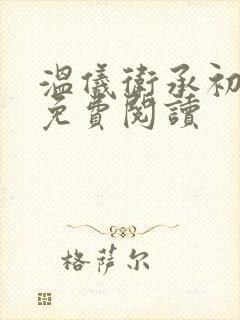 溫儀衛承初
免費閱讀
格萨尔